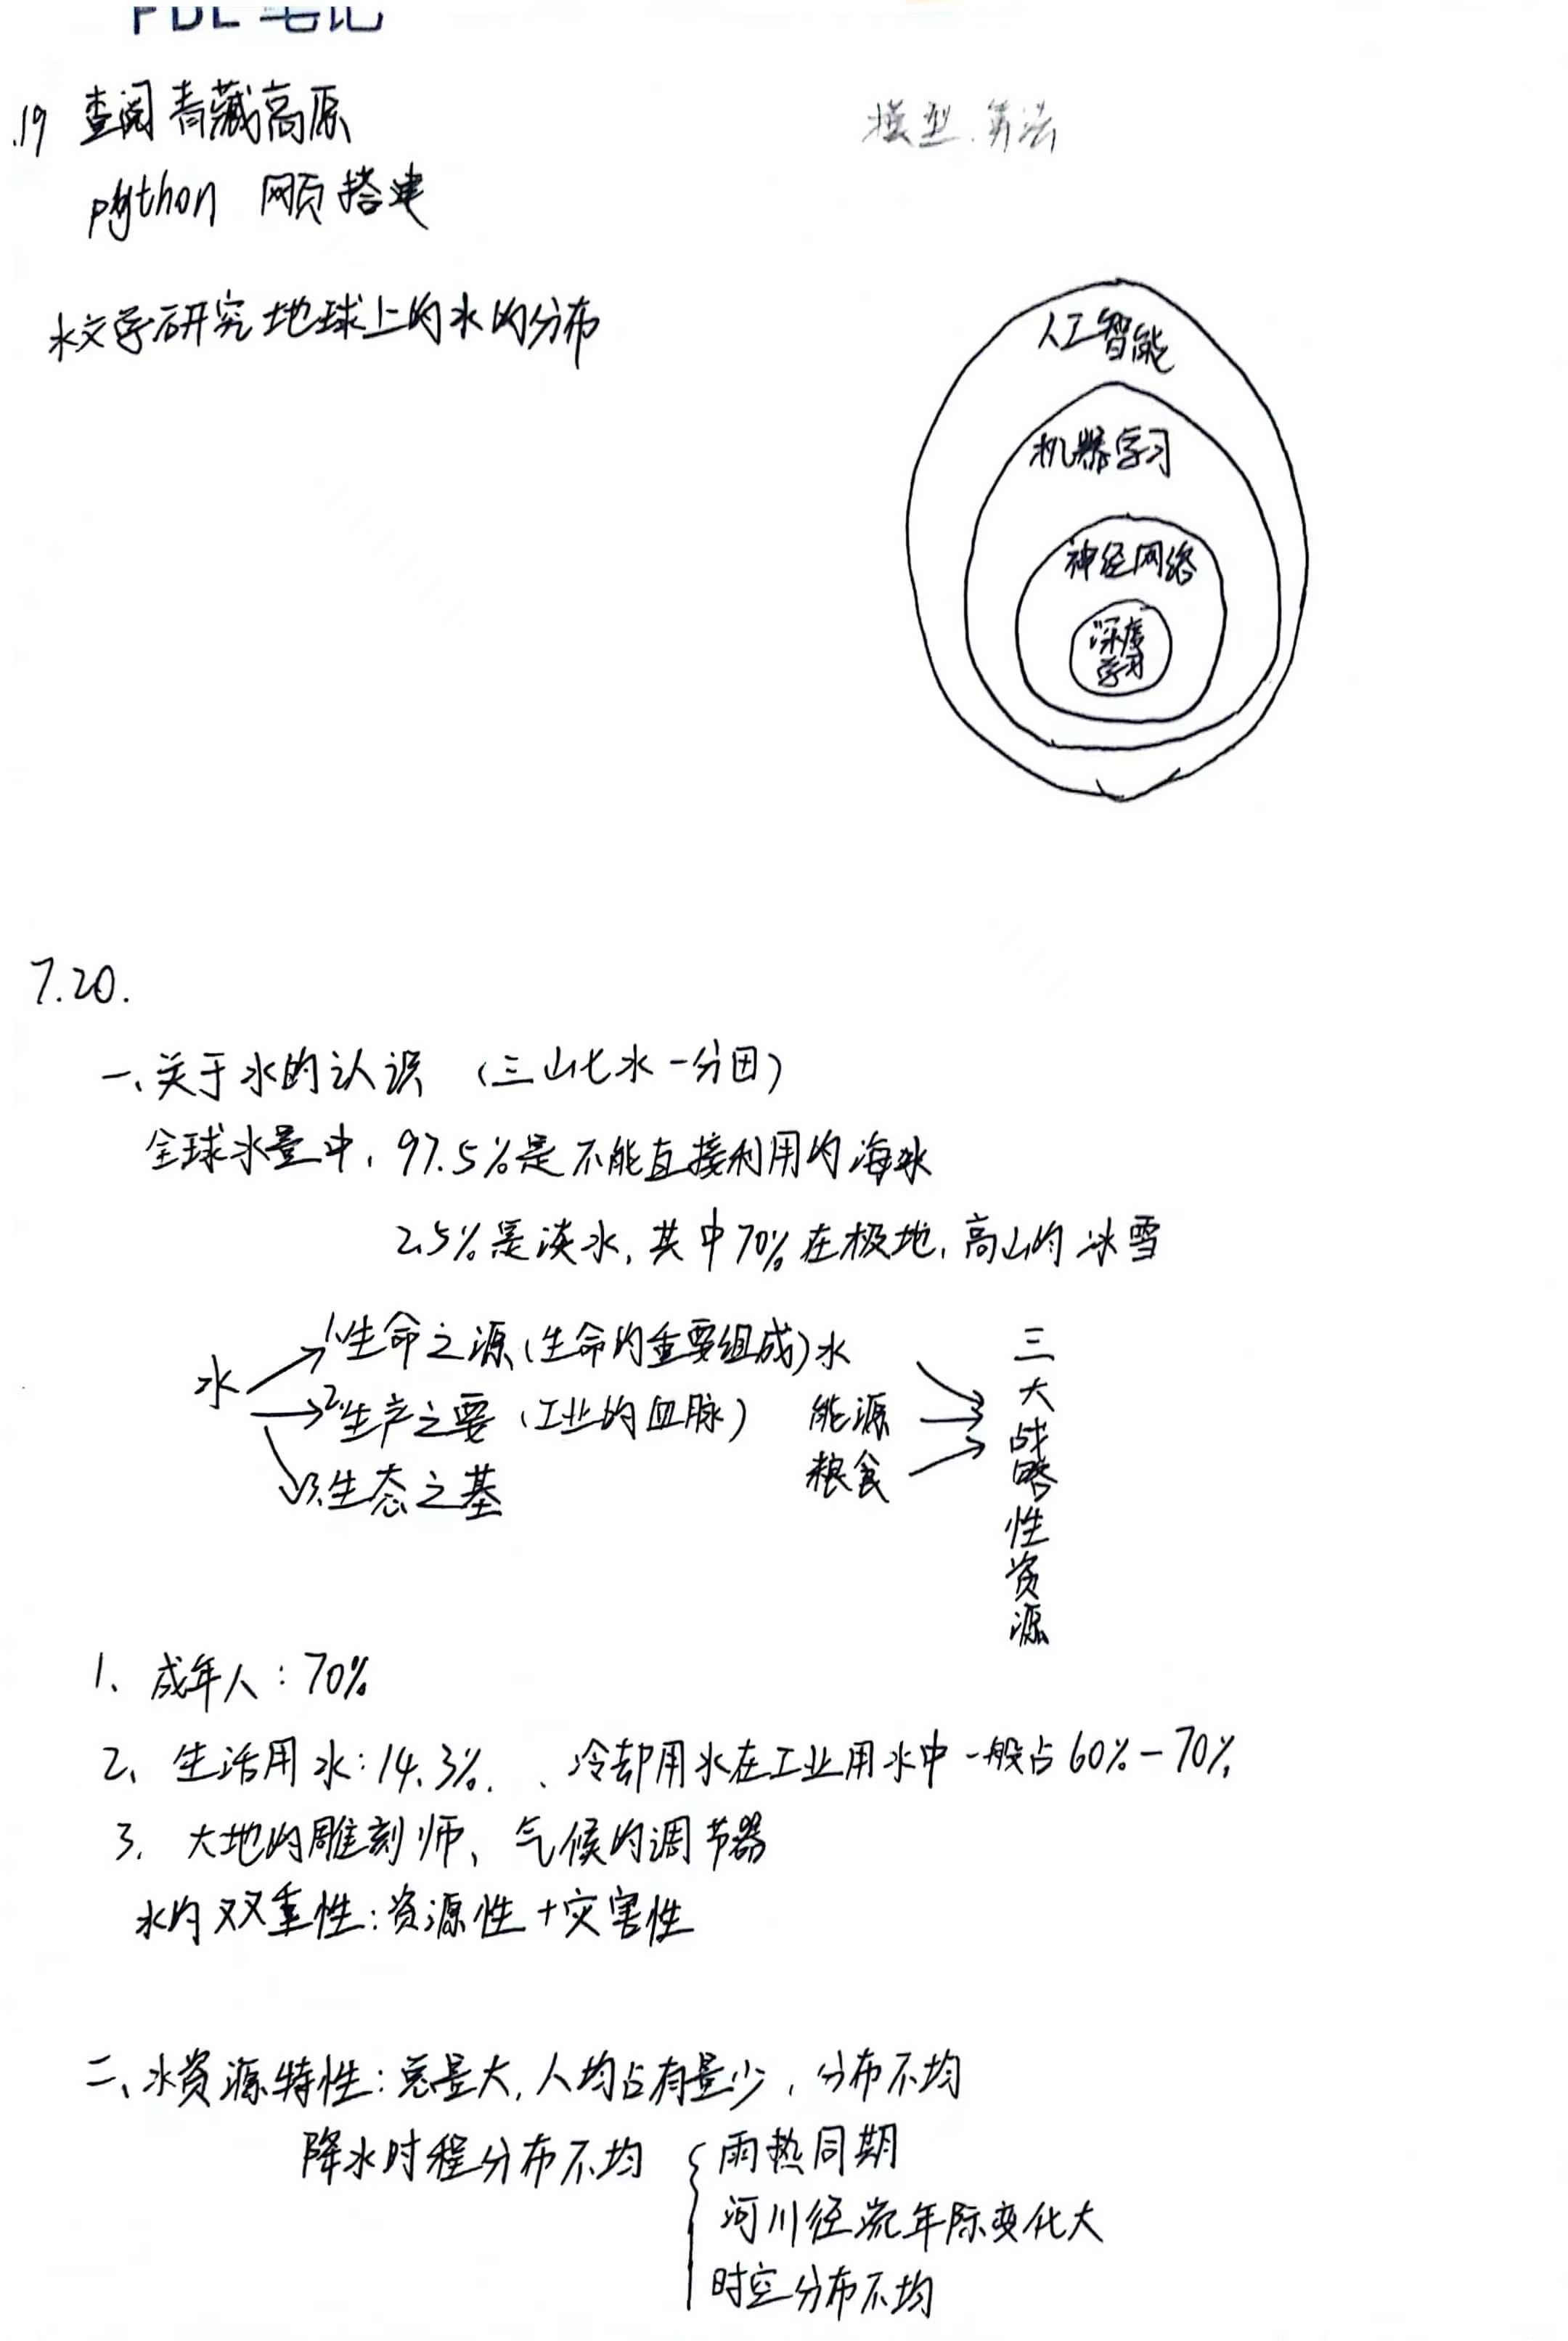 PBL 笔记
.19 查阅青藏高原
模型、算法
python 网页搭建
水文学研究地球上的水的分布
人工智能
机器学习
神经网络
深度
学习
7.20.
一、关于水的认识 (三山七水一分田)
全球水量中, 97.5%是不能直接利用的海水
2.5%是淡水, 其中70%在极地, 高山的冰雪
水
1、生命之源 (生命的重要组成)
2、生产之要 (工业的血脉)
3、生态之基
水
能源
粮食
三大战略性资源
1、成年人: 70%
2、生活用水: 14.3%. 、冷却用水在工业用水中一般占60%-70%
3. 大地的雕刻师、气候的调节器
水的双重性: 资源性+灾害性
二、水资源特性: 总量大, 人均占有量少, 分布不均
降水时程分布不均
雨热同期
河川径流年际变化大
时空分布不均